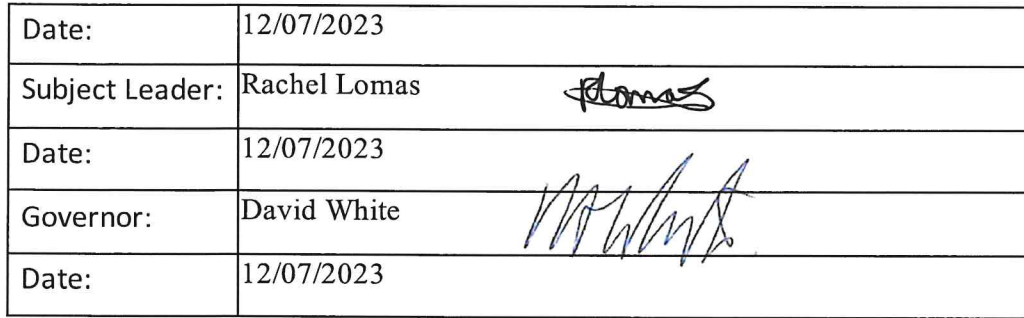 Date: 12/07/2023
Subject Leader: Rachel Lomas RLomas
Date: 12/07/2023
Governor: David White
Date: 12/07/2023